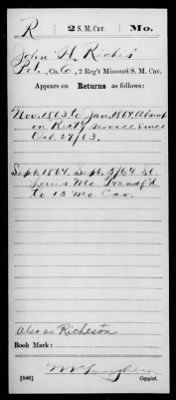 R 2 S. M. Cav. Mo.
John H. Riches
Pvt., Co. C, 2 Reg't Missouri S. M. Cav.
Appears on Returns as follows:
Nov. 1863 to Jan. 1864 Absent
on Rectg service since
Oct. 27/63.
Sept. 1864. Sept. 5/64 St.
Louis Mo Transf'd
to 13 Mo. Cav.
Also as Richeson
Book Mark:
(546) Copyist.